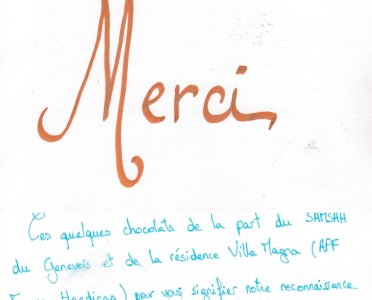 Merci
Ces quelques chocolats de la part du SAMSAH
du Genevois et de la résidence Villa Magna (APF
Handicap) pour vous signifier notre reconnaissance